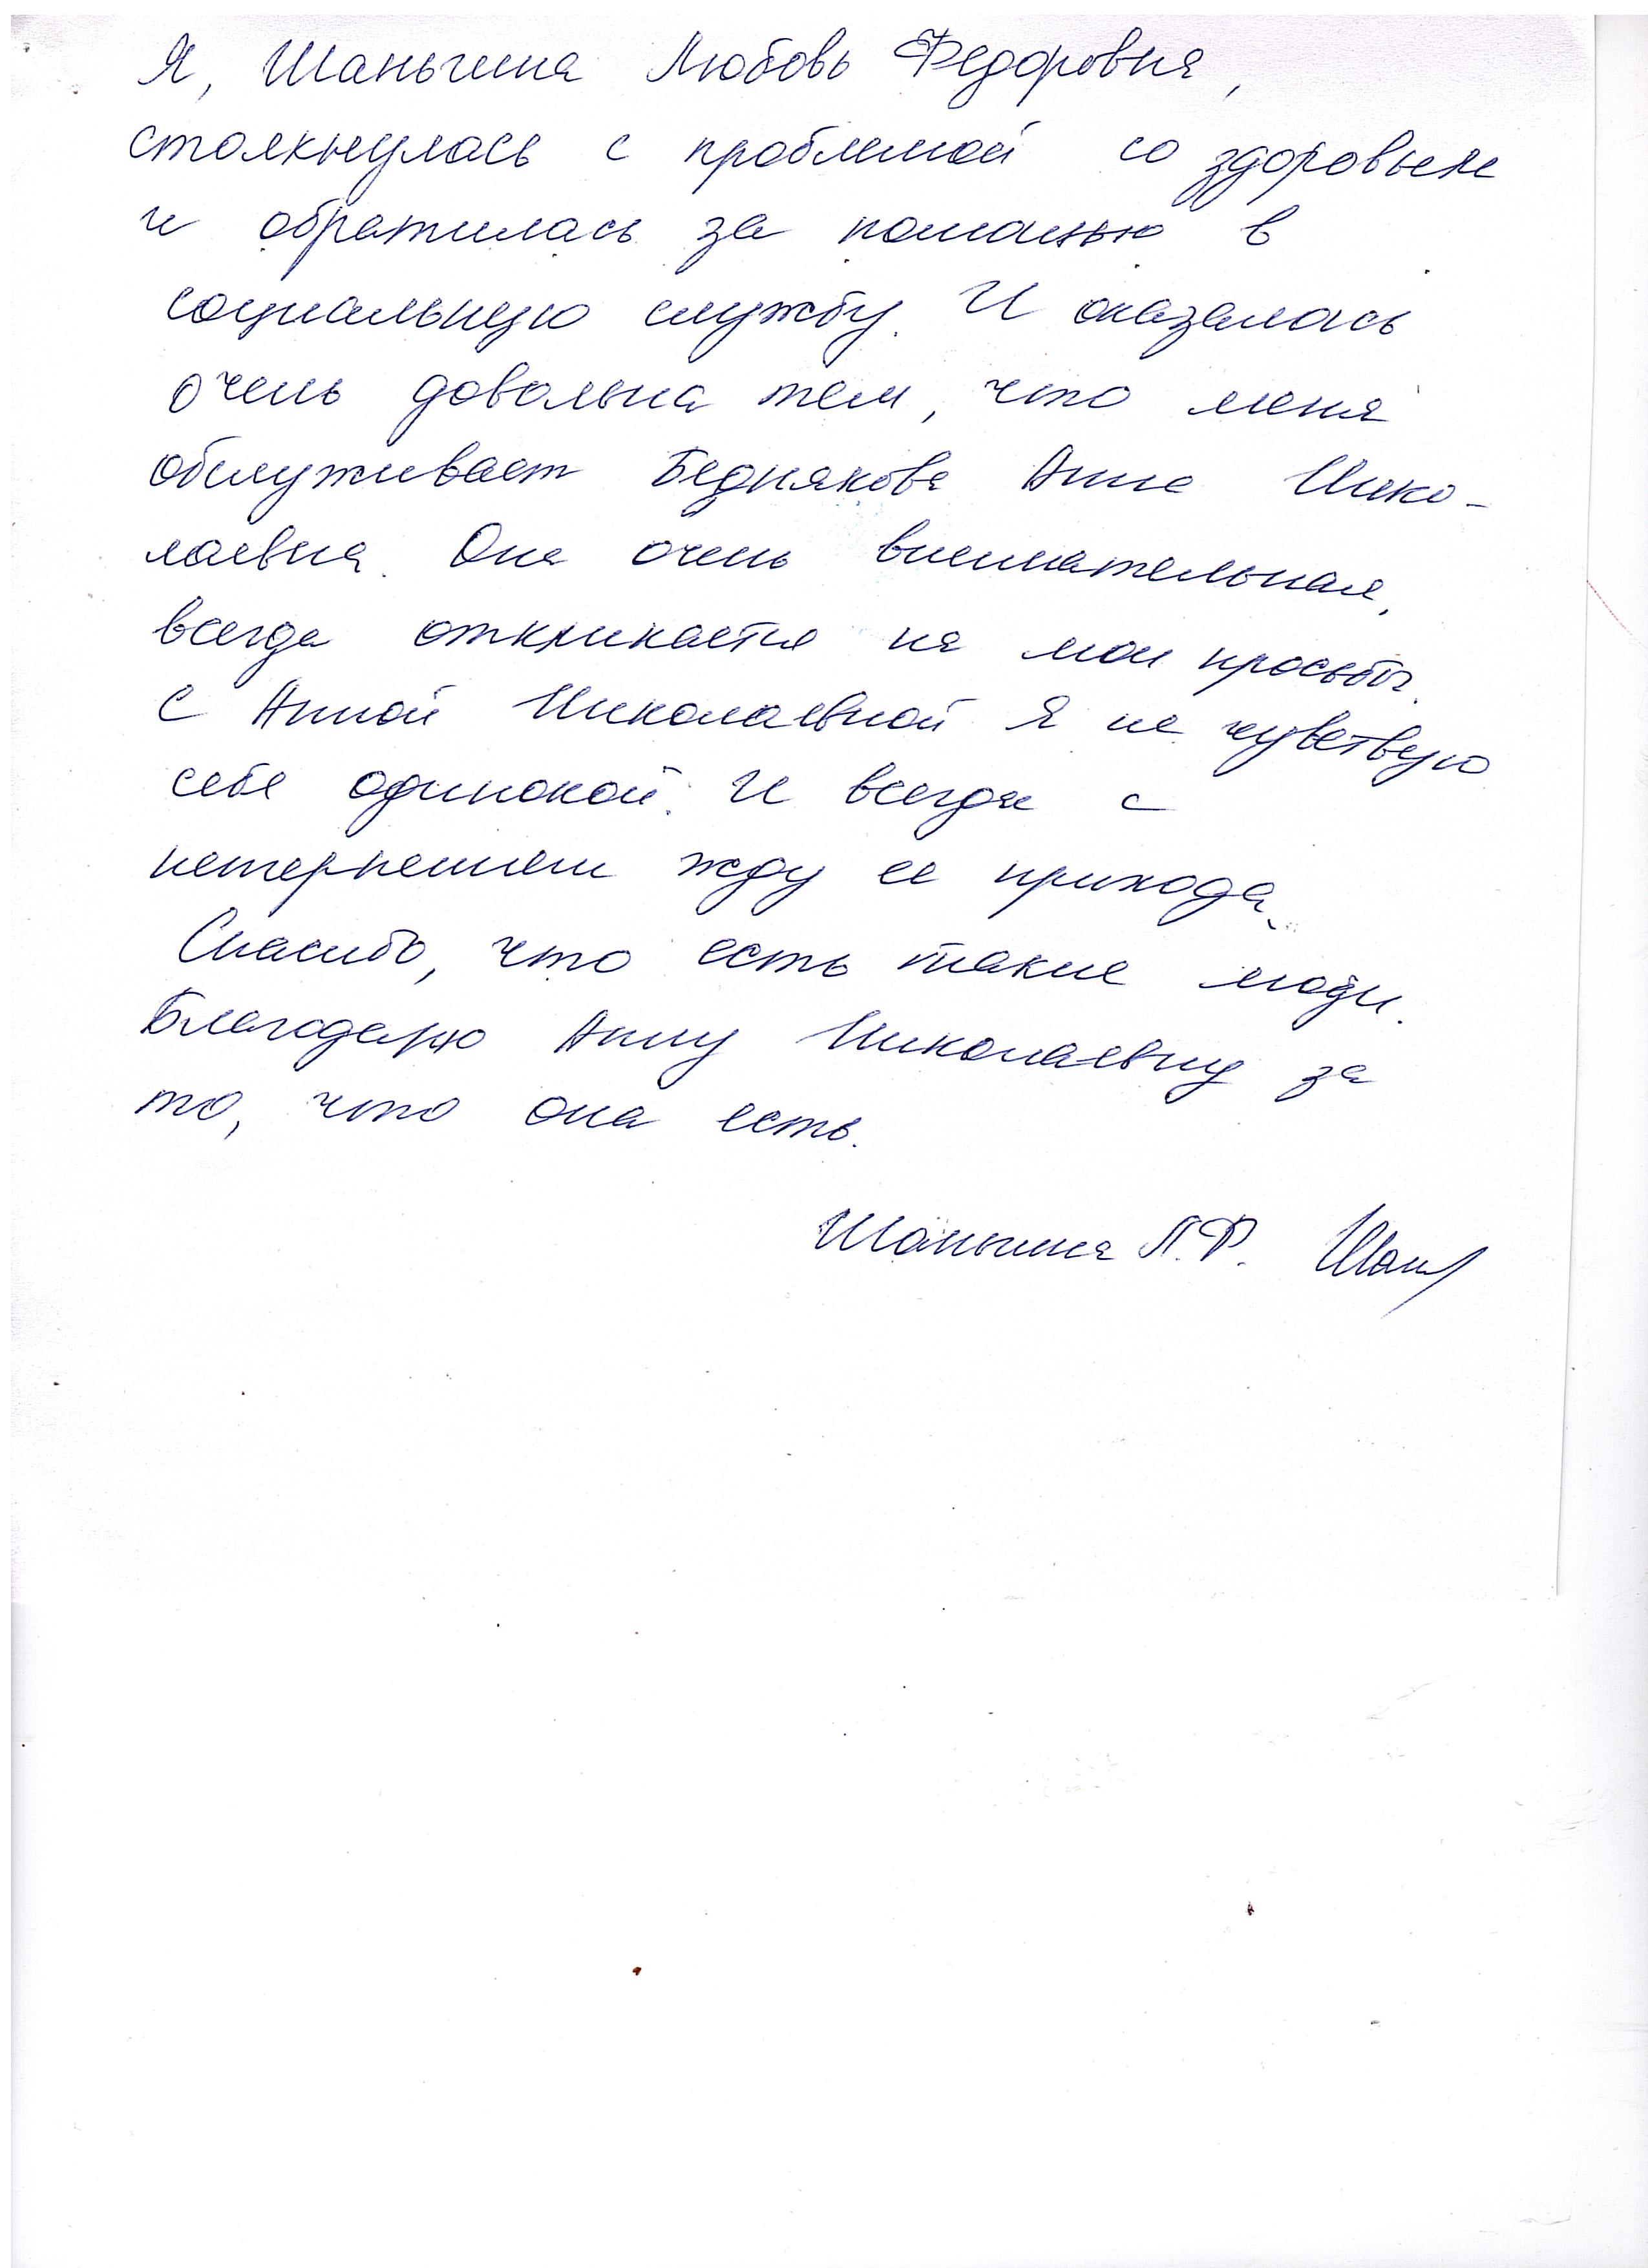 Я, Шаньгина Любовь Федоровна,
столкнулась с проблемой со здоровьем
и обратилась за помощью в
социальную службу. И оказалась
очень довольна тем, что меня
обслуживает Беднякова Анна Нико-
лаевна. Она очень внимательная,
всегда откликается на мои просьбы.
С Анной Николаевной я не чувствую
себя одинокой. И всегда с
нетерпением жду ее прихода.
Спасибо, что есть такие люди.
Благодарю Анну Николаевну за
то, что она есть.
Шаньгина Л.Ф. Шан